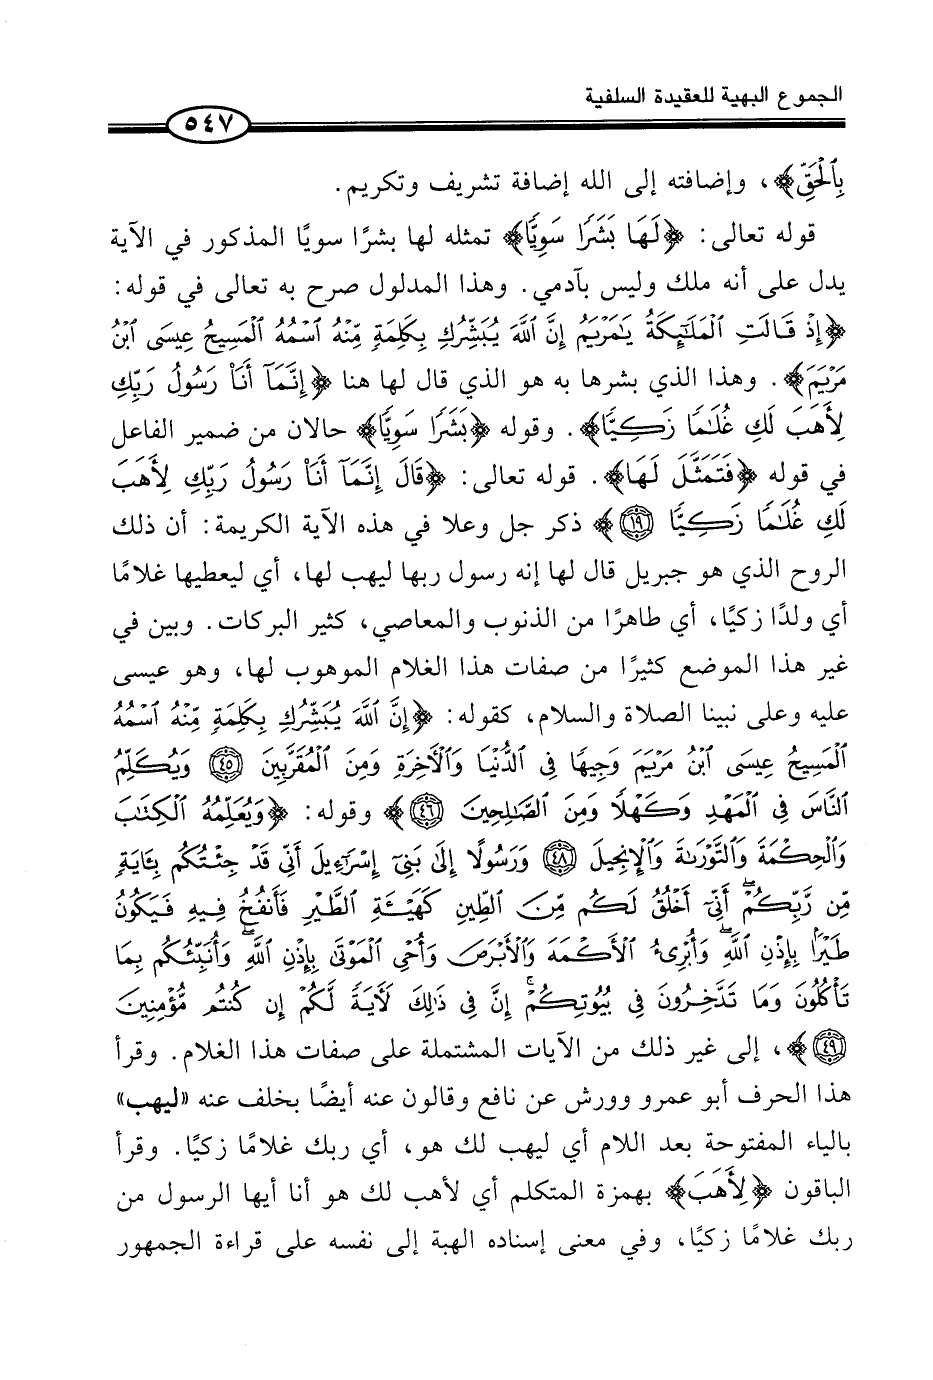 الجموع البهية للعقيدة السلفية
٥٤٧
بِٱلْحَقِّ﴾، وإضافته إلى الله إضافة تشريف وتكريم.
قوله تعالى: ﴿لَهَا بَشَرًا سَوِيًّا﴾ تمثله لها بشرًا سويًا المذكور في الآية
يدل على أنه ملك وليس بآدمي. وهذا المدلول صرح به تعالى في قوله:
﴿إِذْ قَالَتِ ٱلْمَلَٰٓئِكَةُ يَٰمَرْيَمُ إِنَّ ٱللَّهَ يُبَشِّرُكِ بِكَلِمَةٍ مِّنْهُ ٱسْمُهُ ٱلْمَسِيحُ عِيسَى ٱبْنُ
مَرْيَمَ﴾. وهذا الذي بشرها به هو الذي قال لها هنا ﴿إِنَّمَآ أَنَا۠ رَسُولُ رَبِّكِ
لِأَهَبَ لَكِ غُلَٰمًا زَكِيًّا﴾. وقوله ﴿بَشَرًا سَوِيًّا﴾ حالان من ضمير الفاعل
في قوله ﴿فَتَمَثَّلَ لَهَا﴾. قوله تعالى: ﴿قَالَ إِنَّمَآ أَنَا۠ رَسُولُ رَبِّكِ لِأَهَبَ
لَكِ غُلَٰمًا زَكِيًّا ١٩﴾ ذكر جل وعلا في هذه الآية الكريمة: أن ذلك
الروح الذي هو جبريل قال لها إنه رسول ربها ليهب لها، أي ليعطيها غلامًا
أي ولدًا زكيًا، أي طاهرًا من الذنوب والمعاصي، كثير البركات. وبين في
غير هذا الموضع كثيرًا من صفات هذا الغلام الموهوب لها، وهو عيسى
عليه وعلى نبينا الصلاة والسلام، كقوله: ﴿إِنَّ ٱللَّهَ يُبَشِّرُكِ بِكَلِمَةٍ مِّنْهُ ٱسْمُهُ
ٱلْمَسِيحُ عِيسَى ٱبْنُ مَرْيَمَ وَجِيهًا فِى ٱلدُّنْيَا وَٱلْأَخِرَةِ وَمِنَ ٱلْمُقَرَّبِينَ ٤٥ وَيُكَلِّمُ
ٱلنَّاسَ فِى ٱلْمَهْدِ وَكَهْلًا وَمِنَ ٱلصَّٰلِحِينَ ٤٦﴾ وقوله: ﴿وَيُعَلِّمُهُ ٱلْكِتَٰبَ
وَٱلْحِكْمَةَ وَٱلتَّوْرَىٰةَ وَٱلْإِنجِيلَ ٤٨ وَرَسُولًا إِلَىٰ بَنِىٓ إِسْرَٰٓءِيلَ أَنِّى قَدْ جِئْتُكُم بِـَٔايَةٍ
مِّن رَّبِّكُمْ ۖ أَنِّىٓ أَخْلُقُ لَكُم مِّنَ ٱلطِّينِ كَهَيْـَٔةِ ٱلطَّيْرِ فَأَنفُخُ فِيهِ فَيَكُونُ
طَيْرًۢا بِإِذْنِ ٱللَّهِ ۖ وَأُبْرِئُ ٱلْأَكْمَهَ وَٱلْأَبْرَصَ وَأُحْىِ ٱلْمَوْتَىٰ بِإِذْنِ ٱللَّهِ ۖ وَأُنَبِّئُكُم بِمَا
تَأْكُلُونَ وَمَا تَدَّخِرُونَ فِى بُيُوتِكُمْ ۚ إِنَّ فِى ذَٰلِكَ لَأَيَةً لَّكُمْ إِن كُنتُم مُّؤْمِنِينَ
٤٩﴾، إلى غير ذلك من الآيات المشتملة على صفات هذا الغلام. وقرأ
هذا الحرف أبو عمرو وورش عن نافع وقالون عنه أيضًا بخلف عنه «ليهب»
بالياء المفتوحة بعد اللام أي ليهب لك هو، أي ربك غلامًا زكيًا. وقرأ
الباقون ﴿لِأَهَبَ﴾ بهمزة المتكلم أي لأهب لك هو أنا أيها الرسول من
ربك غلامًا زكيًا، وفي معنى إسناده الهبة إلى نفسه على قراءة الجمهور